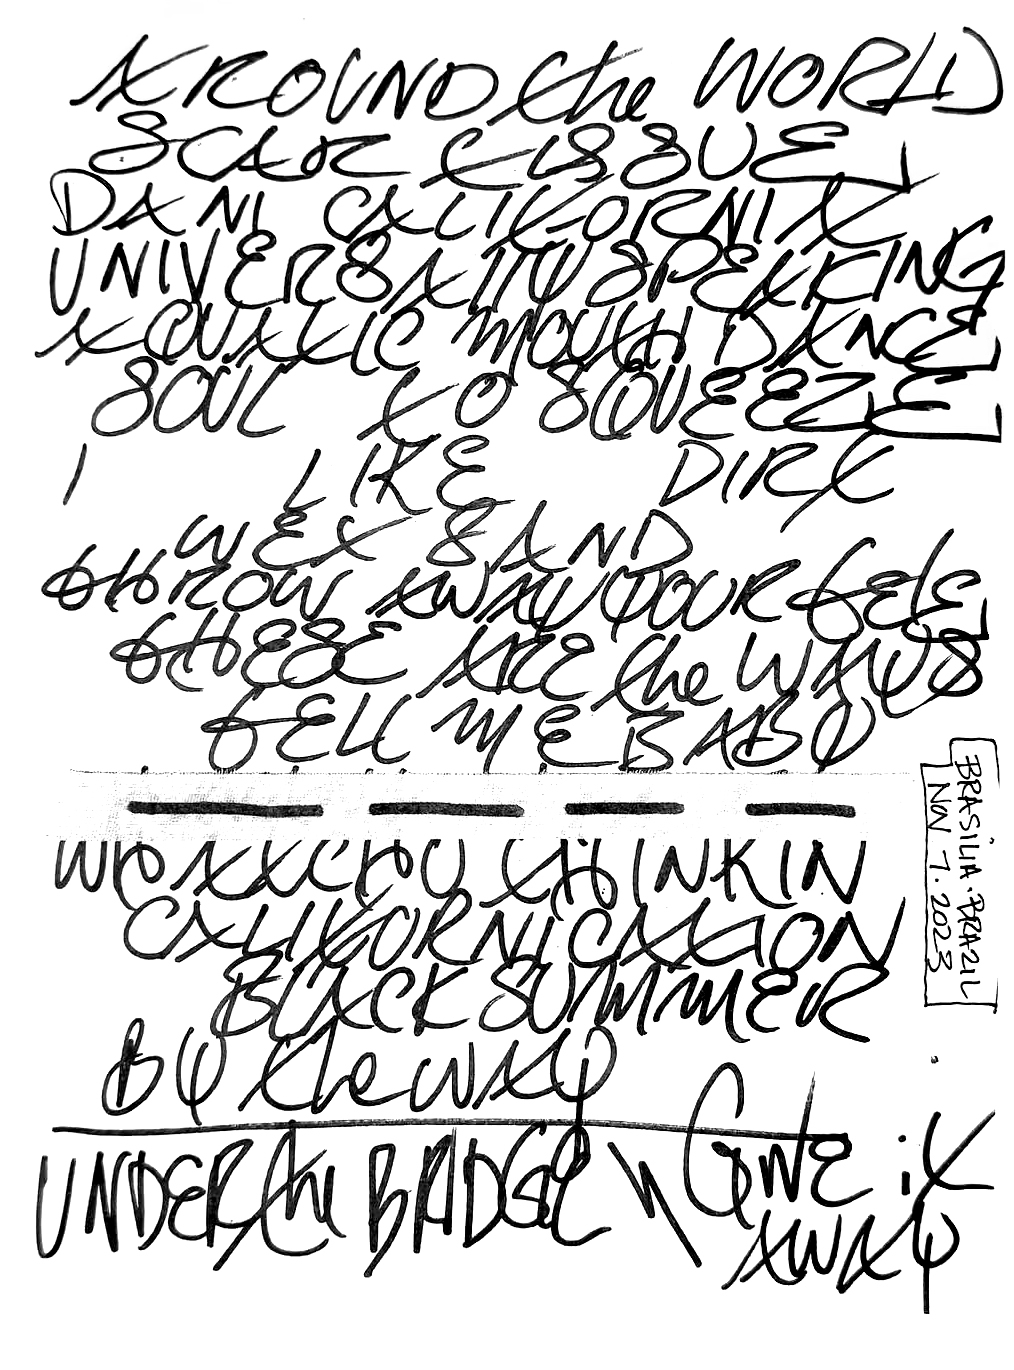 AROUND the WORLD
SCAR TISSUE
DANI CALIFORNIA
UNIVERSALLY SPEAKING
AQUATIC MOUTH DANCE
SOUL TO SQUEEZE
I LIKE DIRT
WET SAND
THROW AWAY YOUR TELE
THESE ARE the WAYS
TELL ME BABY
WHATCHU THINKIN
CALIFORNICATION
BLACK SUMMER
BY the WAY
UNDER the BRIDGE \\ GIVE iT
AWAY
BRASILIA. BRAZIL
NOV 7. 2023